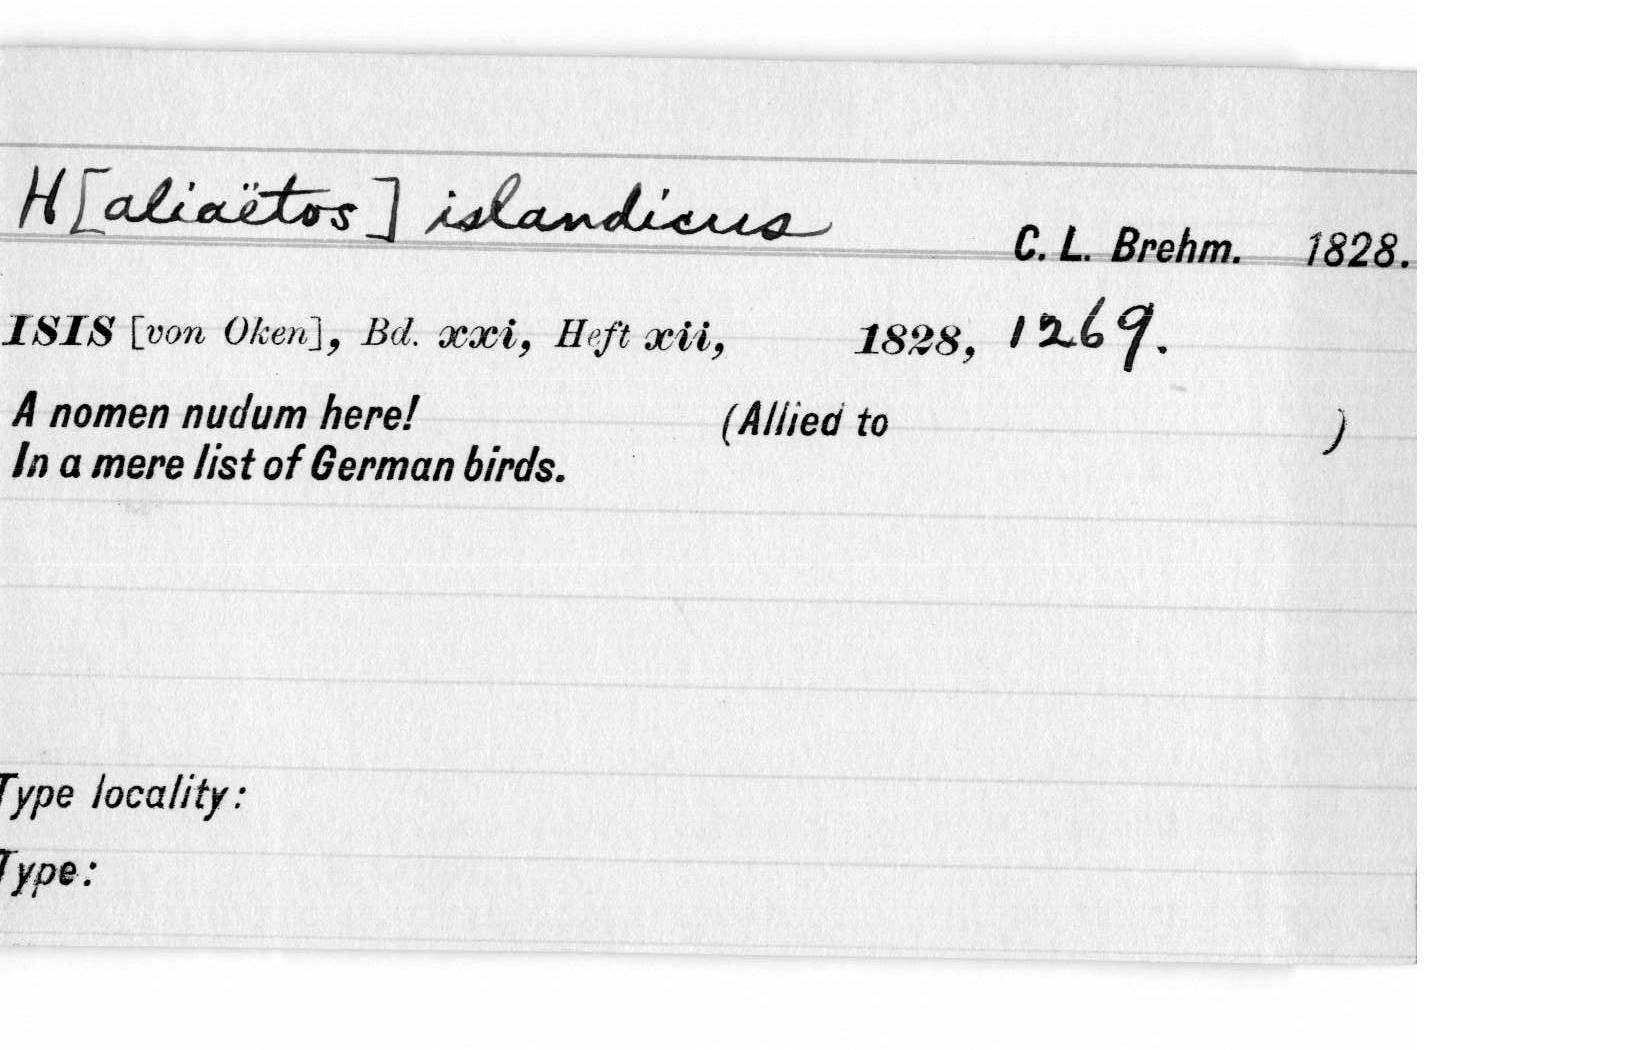 H[aliaëtos] islandicus
C. L. Brehm. 1828.
ISIS [von Oken], Bd. xxi, Heft xii, 1828, 1269.
A nomen nudum here! (Allied to )
In a mere list of German birds.
Type locality:
Type: